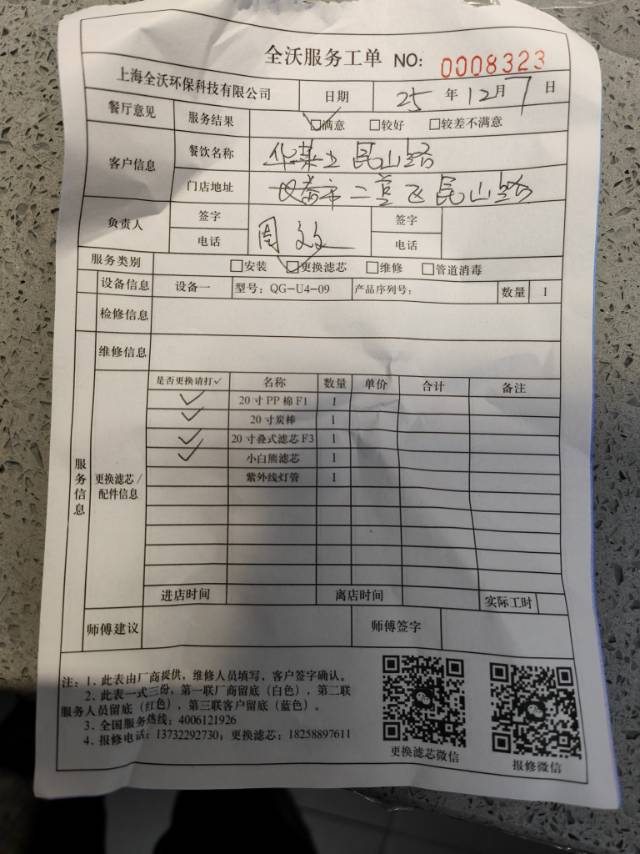 全沃服务工单 NO: 0008323
上海全沃环保科技有限公司 日期 25 年 12 月 7 日
餐厅意见 服务结果 ☑满意 □较好 □较差不满意
客户信息 餐饮名称 华莱士 昆山路
门店地址 昆山路
负责人 签字 周 签字
电话 电话
服务类别 □安装 ☑更换滤芯 □维修 □管道消毒
设备信息 设备一 型号: QG-U4-09 产品序列号: 数量 1
检修信息
维修信息
服务信息
更换滤芯/配件信息
是否更换请打✓ 名称 数量 单价 合计 备注
✓ 20寸PP棉F1 1
✓ 20寸炭棒 1
✓ 20寸叠式滤芯F3 1
✓ 小白熊滤芯 1
紫外线灯管 1
进店时间 离店时间 实际工时
师傅建议 师傅签字
注: 1、此表由厂商提供, 维修人员填写, 客户签字确认。
2、此表一式三份, 第一联厂商留底(白色), 第二联
服务人员留底(红色), 第三联客户留底(蓝色)。
3、全国服务热线: 4006121926
4、报修电话: 13732292730; 更换滤芯: 18258897611
更换滤芯微信
报修微信